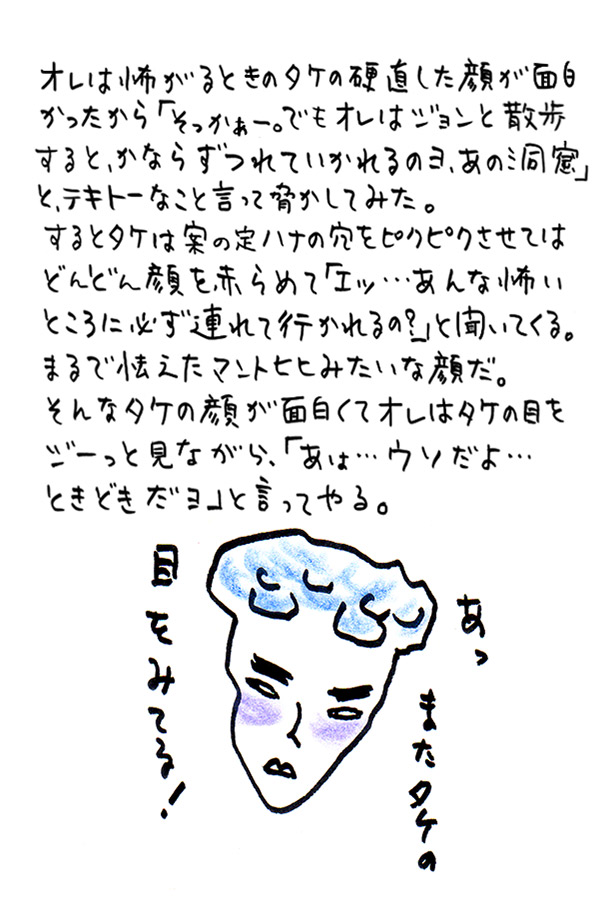 オレは怖がるときのタケの硬直した顔が面白
かったから「そっかぁー。でもオレはジョンと散歩
すると、かならずつれていかれるのヨ、あの洞窟」
と、テキトーなこと言って脅かしてみた。
するとタケは案の定ハナの穴をピクピクさせては
どんどん顔を赤らめて「エッ…あんな怖い
ところに必ず連れて行かれるの?」と聞いてくる。
まるで怯えたマントヒヒみたいな顔だ。
そんなタケの顔が面白くてオレはタケの目を
ジーっと見ながら、「あは…ウソだよ…
ときどきだヨ」と言ってやる。
あっ
またタケの
目をみてる!